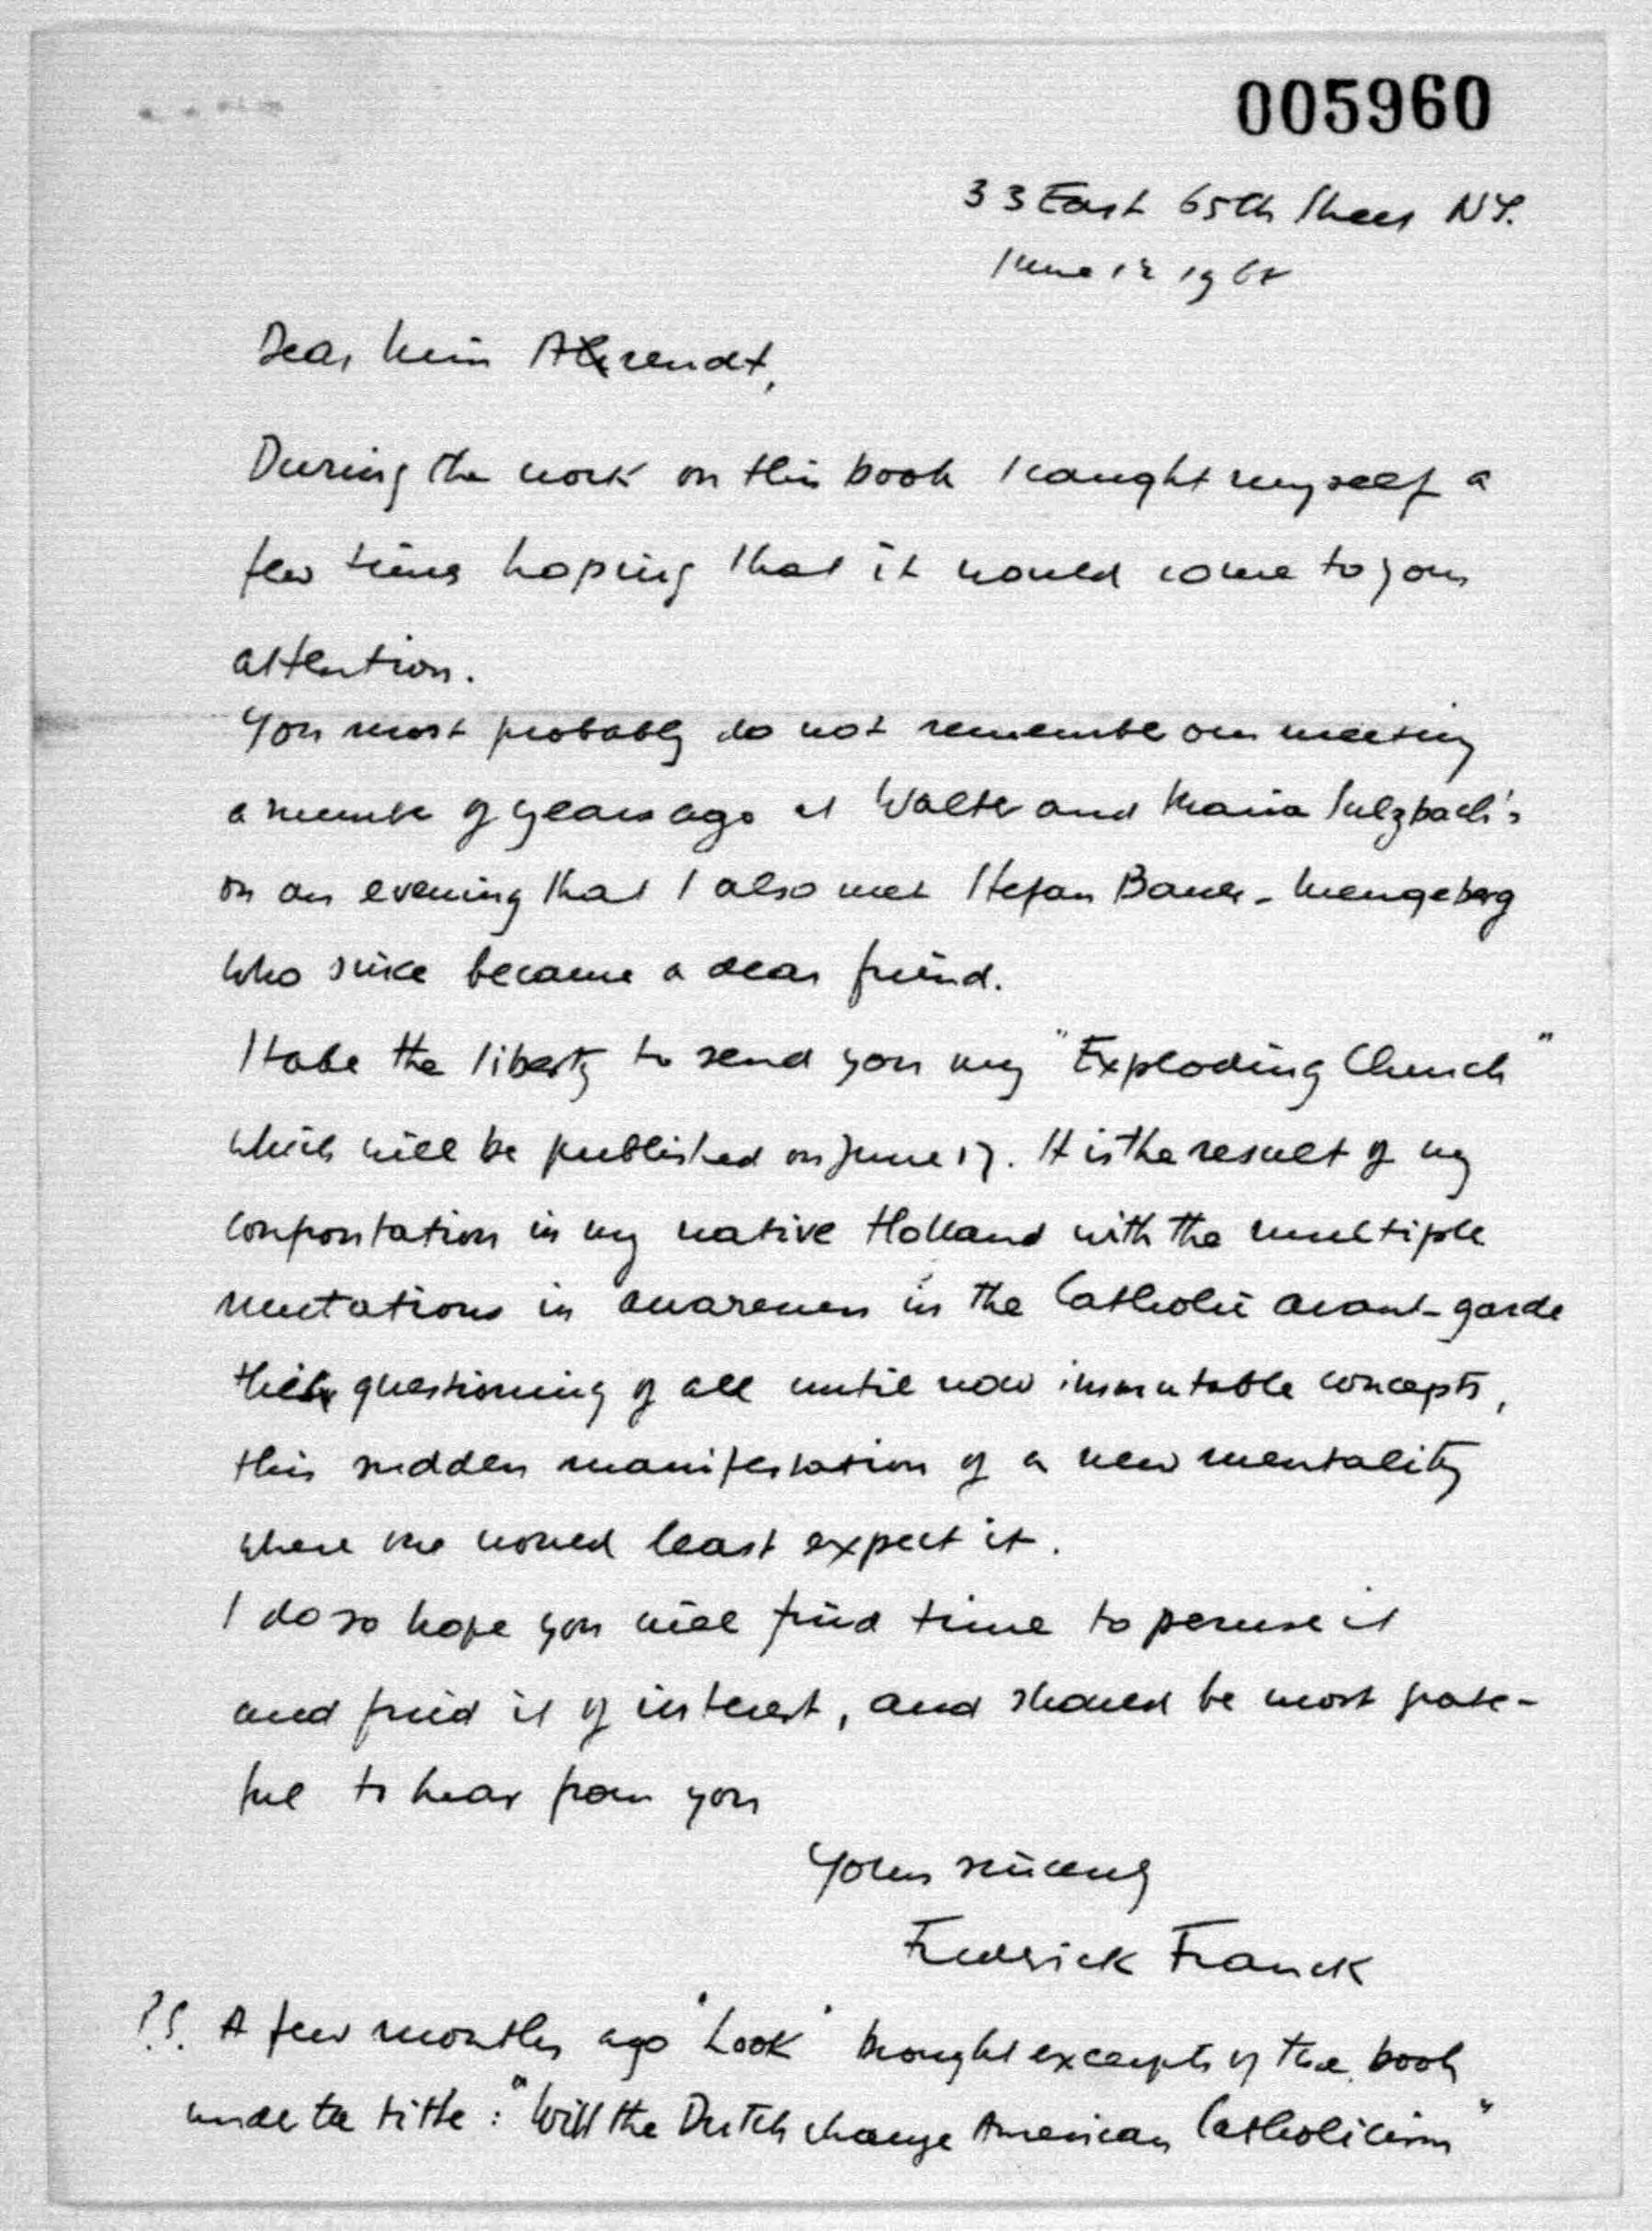 005960
33 East 65th Street NY.
June 12 1968
Dear Miss Arendt,
During the work on this book I caught myself a
few times hoping that it would come to your
attention.
You most probably do not remember our meeting
a number of years ago at Walter and Maria Sulzbach's
on an evening that I also met Stefan Bauer-Mengelberg
who since became a dear friend.
I take the liberty to send you my "Exploding Church"
which will be published on June 17. It is the result of my
confrontation in my native Holland with the multiple
mutations in awareness in the Catholic avant-garde
their questioning of all until now immutable concepts,
this sudden manifestation of a new mentality
where one would least expect it.
I do so hope you will find time to peruse it
and find it of interest, and should be most grate-
ful to hear from you
Yours sincerely
Frederick Franck
P.S. A few months ago "Look" brought excerpts of the book
under the title: "Will the Dutch change American Catholicism"